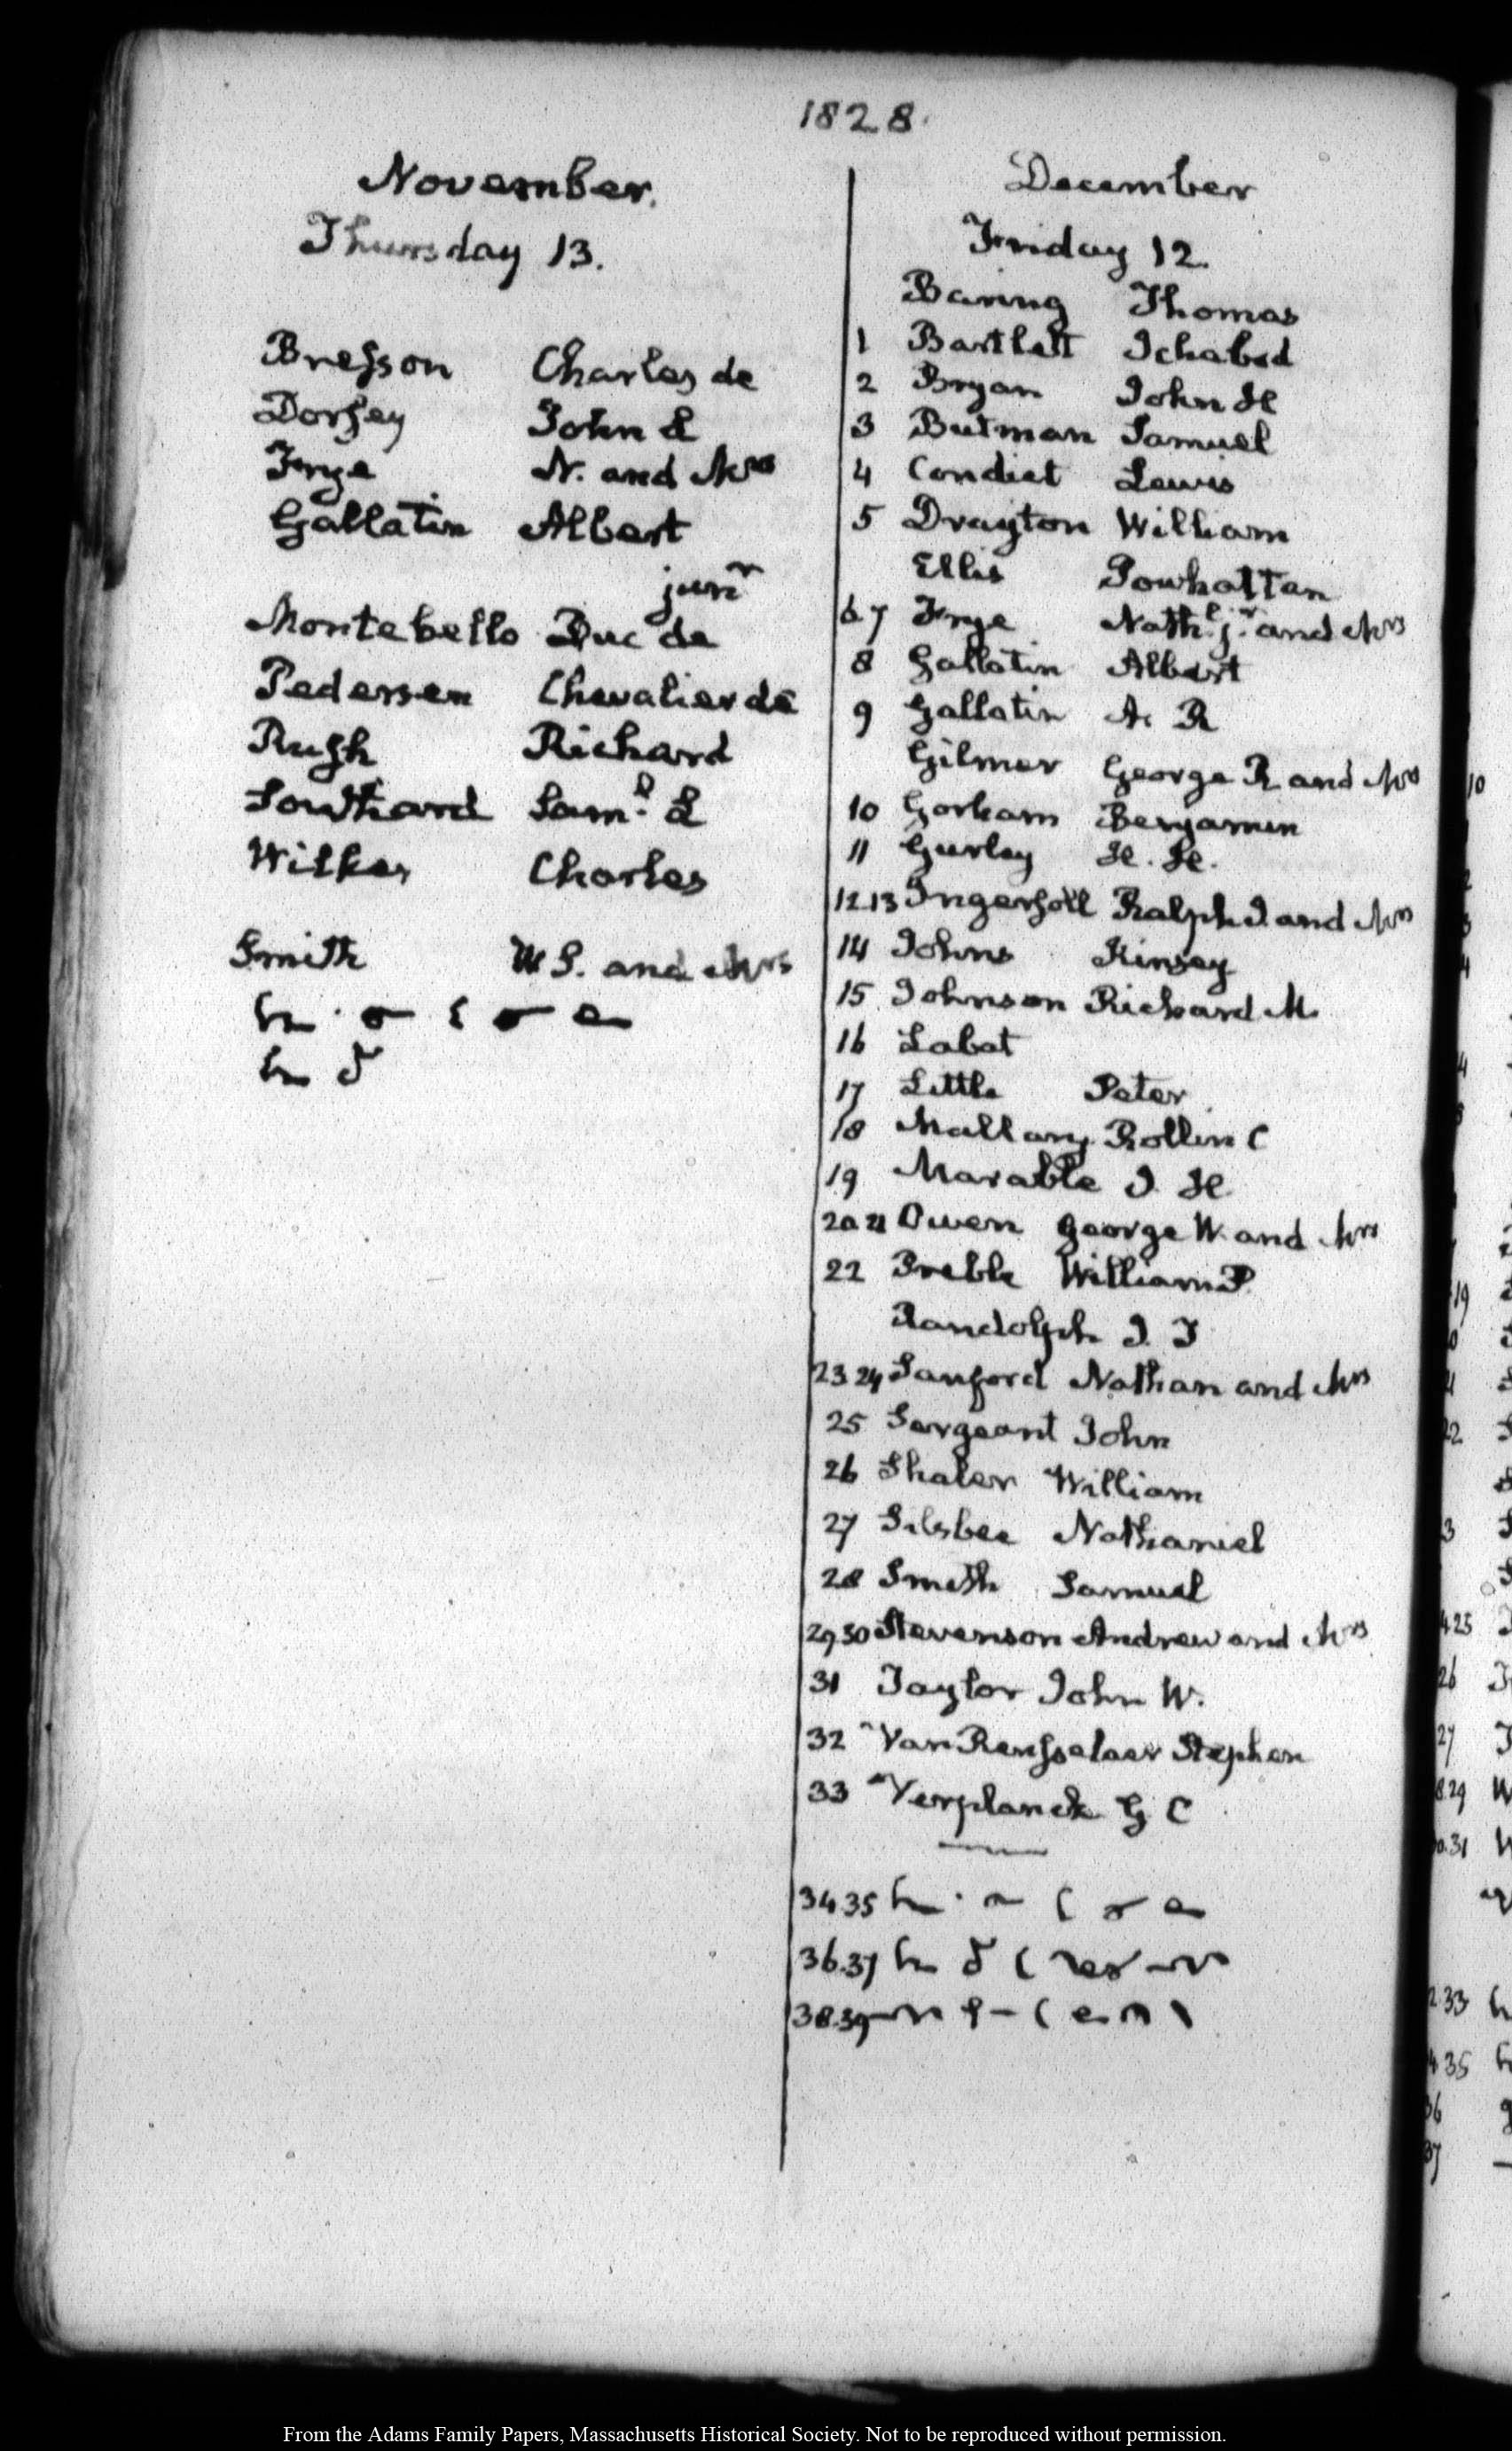 1828.
November.
Thursday 13.
Bresson Charles de
Dorsey John L
Frye N. and Mrs
Gallatin Albert
junr
Montebello Duc de
Pedersen Chevalier de
Rush Richard
Southard Saml. L
Wilkes Charles
Smith W S. and Mrs
December
Friday 12.
Baring Thomas
1 Bartlett Ichabod
2 Bryan John H
3 Butman Samuel
4 Condict Lewis
5 Drayton William
Ellis Powhattan
6.7 Frye Nathl. jr. and Mrs
8 Gallatin Albert
9 Gallatin A. R
Gilmer George R and Mrs
10 Gorham Benjamin
11 Gurley H. H.
12.13 Ingersoll Ralph I. and Mrs
14 Johns Kinsey
15 Johnson Richard M.
16 Labat
17 Little Peter
18 Mallary Rollin C
19 Marable J. H
20 21 Owen George W. and Mrs
22 Preble William P.
Randolph J. T
23 24 Sanford Nathan and Mrs
25 Sergeant John
26 Shaler William
27 Silsbee Nathaniel
28 Smith Samuel
29 30 Stevenson Andrew and Mrs
31 Taylor John W.
32 Van Rensselaer Stephen
33 Verplanck G C
34 35
36.37
38.39
From the Adams Family Papers, Massachusetts Historical Society. Not to be reproduced without permission.